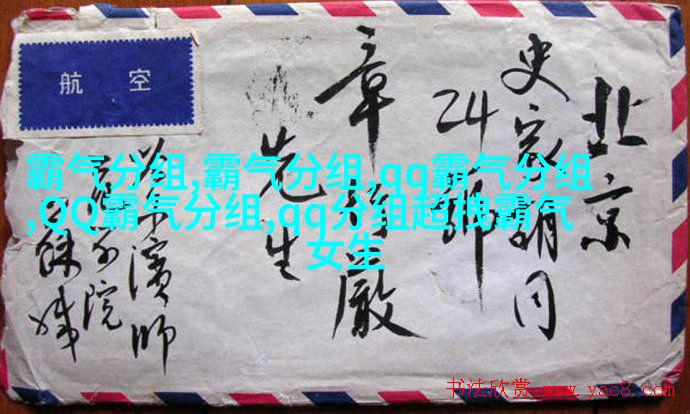 航空
北京
史家胡同
24
章 嚴
先生
濱師
院
霸气分组,霸气分组,qq霸气分组
,QQ霸气分组,qq分组超拽霸气
女生
书法欣赏 www.yac8.com